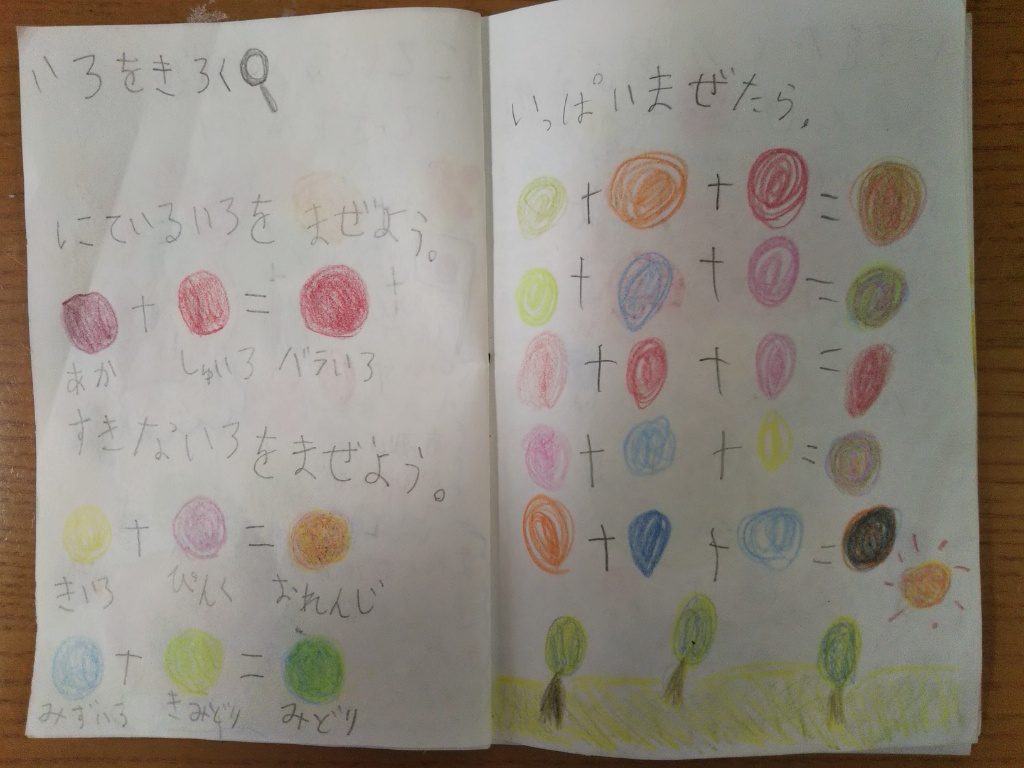 いろをきろく
にているいろをまぜよう。
+ =
あか しゅいろ バラいろ
すきないろをまぜよう。
+ =
きいろ ぴんく おれんじ
+ =
みずいろ きみどり みどり
いっぱいまぜたら、
+ + =
+ + =
+ + =
+ + =
+ + =